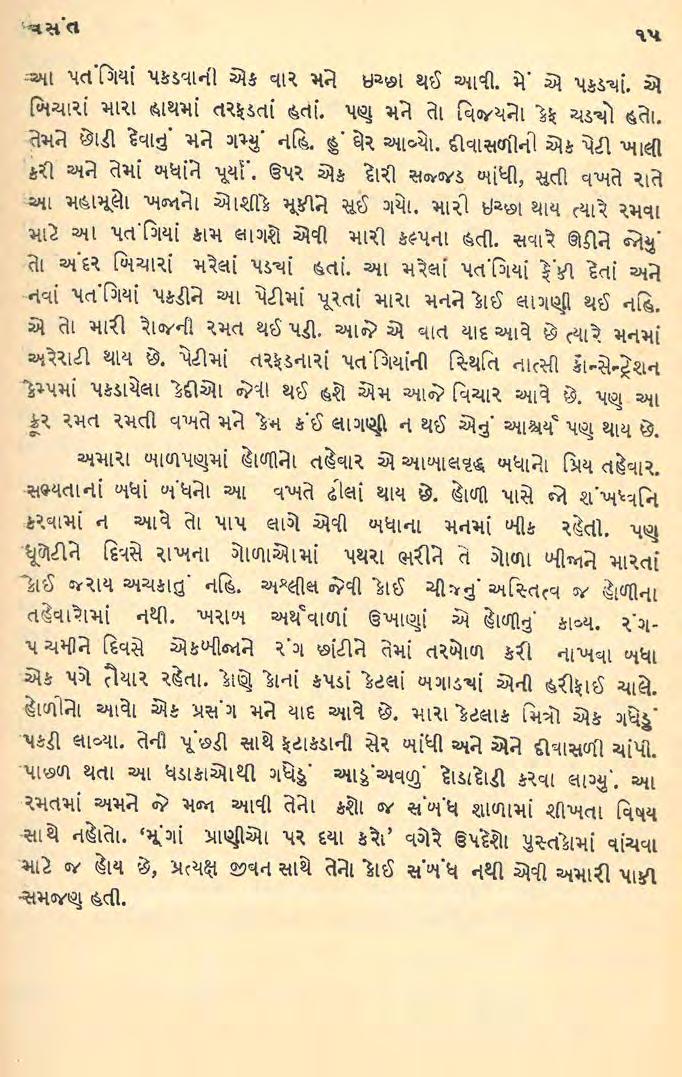 વસંત
૧૫
આ પતંગિયાં પકડવાની એક વાર મને ઇચ્છા થઈ આવી. મેં એ પકડ્યાં. એ
બિચારાં મારા હાથમાં તરફડતાં હતાં. પણ મને તો વિજયનો કેફ ચડ્યો હતો.
તેમને છોડી દેવાનું મને ગમ્યું નહિ. હું ઘેર આવ્યો. દીવાસળીની એક પેટી ખાલી
કરી અને તેમાં બધાંને પૂર્યાં. ઉપર એક દોરી સજ્જડ બાંધી, સુતી વખતે રાતે
આ મહામૂલો ખજાનો ઓશીકે મૂકીને સૂઈ ગયો. મારી ઇચ્છા થાય ત્યારે રમવા
માટે આ પતંગિયાં કામ લાગશે એવી મારી કલ્પના હતી. સવારે ઊઠીને જોયું
તો અંદર બિચારાં મરેલાં પડ્યાં હતાં. આ મરેલાં પતંગિયાં ફેંકી દેતાં અને
નવાં પતંગિયાં પકડીને આ પેટીમાં પૂરતાં મારા મનને કોઈ લાગણી થઈ નહિ.
એ તો મારી રોજની રમત થઈ પડી. આજે એ વાત યાદ આવે છે ત્યારે મનમાં
અરેરાટી થાય છે. પેટીમાં તરફડનારાં પતંગિયાંની સ્થિતિ નાત્સી કૉન્સેન્ટ્રેશન
કેમ્પમાં પકડાયેલા કેદીઓ જેવી થઈ હશે એમ આજે વિચાર આવે છે. પણ આ
ક્રૂર રમત રમતી વખતે મને કેમ કંઈ લાગણી ન થઈ એનું આશ્ચર્ય પણ થાય છે.
અમારા બાળપણમાં હોળીનો તહેવાર એ આબાલવૃદ્ધ બધાનો પ્રિય તહેવાર.
સભ્યતાનાં બધાં બંધનો આ વખતે ઢીલાં થાય છે. હોળી પાસે જો શંખધ્વનિ
કરવામાં ન આવે તો પાપ લાગે એવી બધાના મનમાં બીક રહેતી. પણ
ધૂળેટીને દિવસે રાખના ગોળાઓમાં પથરા ભરીને તે ગોળા બીજાને મારતાં
કોઈ જરાય અચકાતું નહિ. અશ્લીલ જેવી કોઈ ચીજનું અસ્તિત્વ જ હોળીના
તહેવારોમાં નથી. ખરાબ અર્થવાળાં ઉખાણાં એ હોળીનું કાવ્ય. રંગ-
પંચમીને દિવસે એકબીજાને રંગ છાંટીને તેમાં તરબોળ કરી નાખવા બધા
એક પગે તૈયાર રહેતા. કોણે કોનાં કપડાં કેટલાં બગાડ્યાં એની હરીફાઈ ચાલે.
હોળીનો આવો એક પ્રસંગ મને યાદ આવે છે. મારા કેટલાક મિત્રો એક ગધેડું
પકડી લાવ્યા. તેની પૂંછડી સાથે ફટાકડાની સેર બાંધી અને એને દીવાસળી ચાંપી.
પાછળ થતા આ ધડાકાઓથી ગધેડું આડુંઅવળું દોડાદોડી કરવા લાગ્યું. આ
રમતમાં અમને જે મજા આવી તેનો કશો જ સંબંધ શાળામાં શીખતા વિષય
સાથે નહોતો. ‘મૂંગાં પ્રાણીઓ પર દયા કરો’ વગેરે ઉપદેશો પુસ્તકોમાં વાંચવા
માટે જ હોય છે, પ્રત્યક્ષ જીવન સાથે તેનો કોઈ સંબંધ નથી એવી અમારી પાકી
સમજણ હતી.